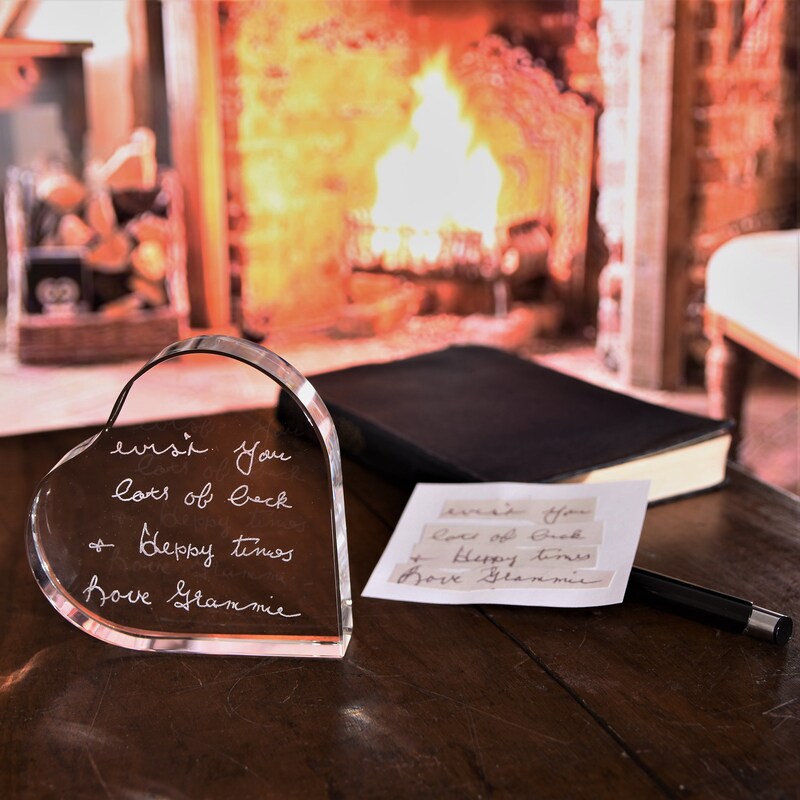 wish you
lots of luck
+ Happy times
Love Grammie
wish you
lots of luck
+ Happy times
Love Grammie